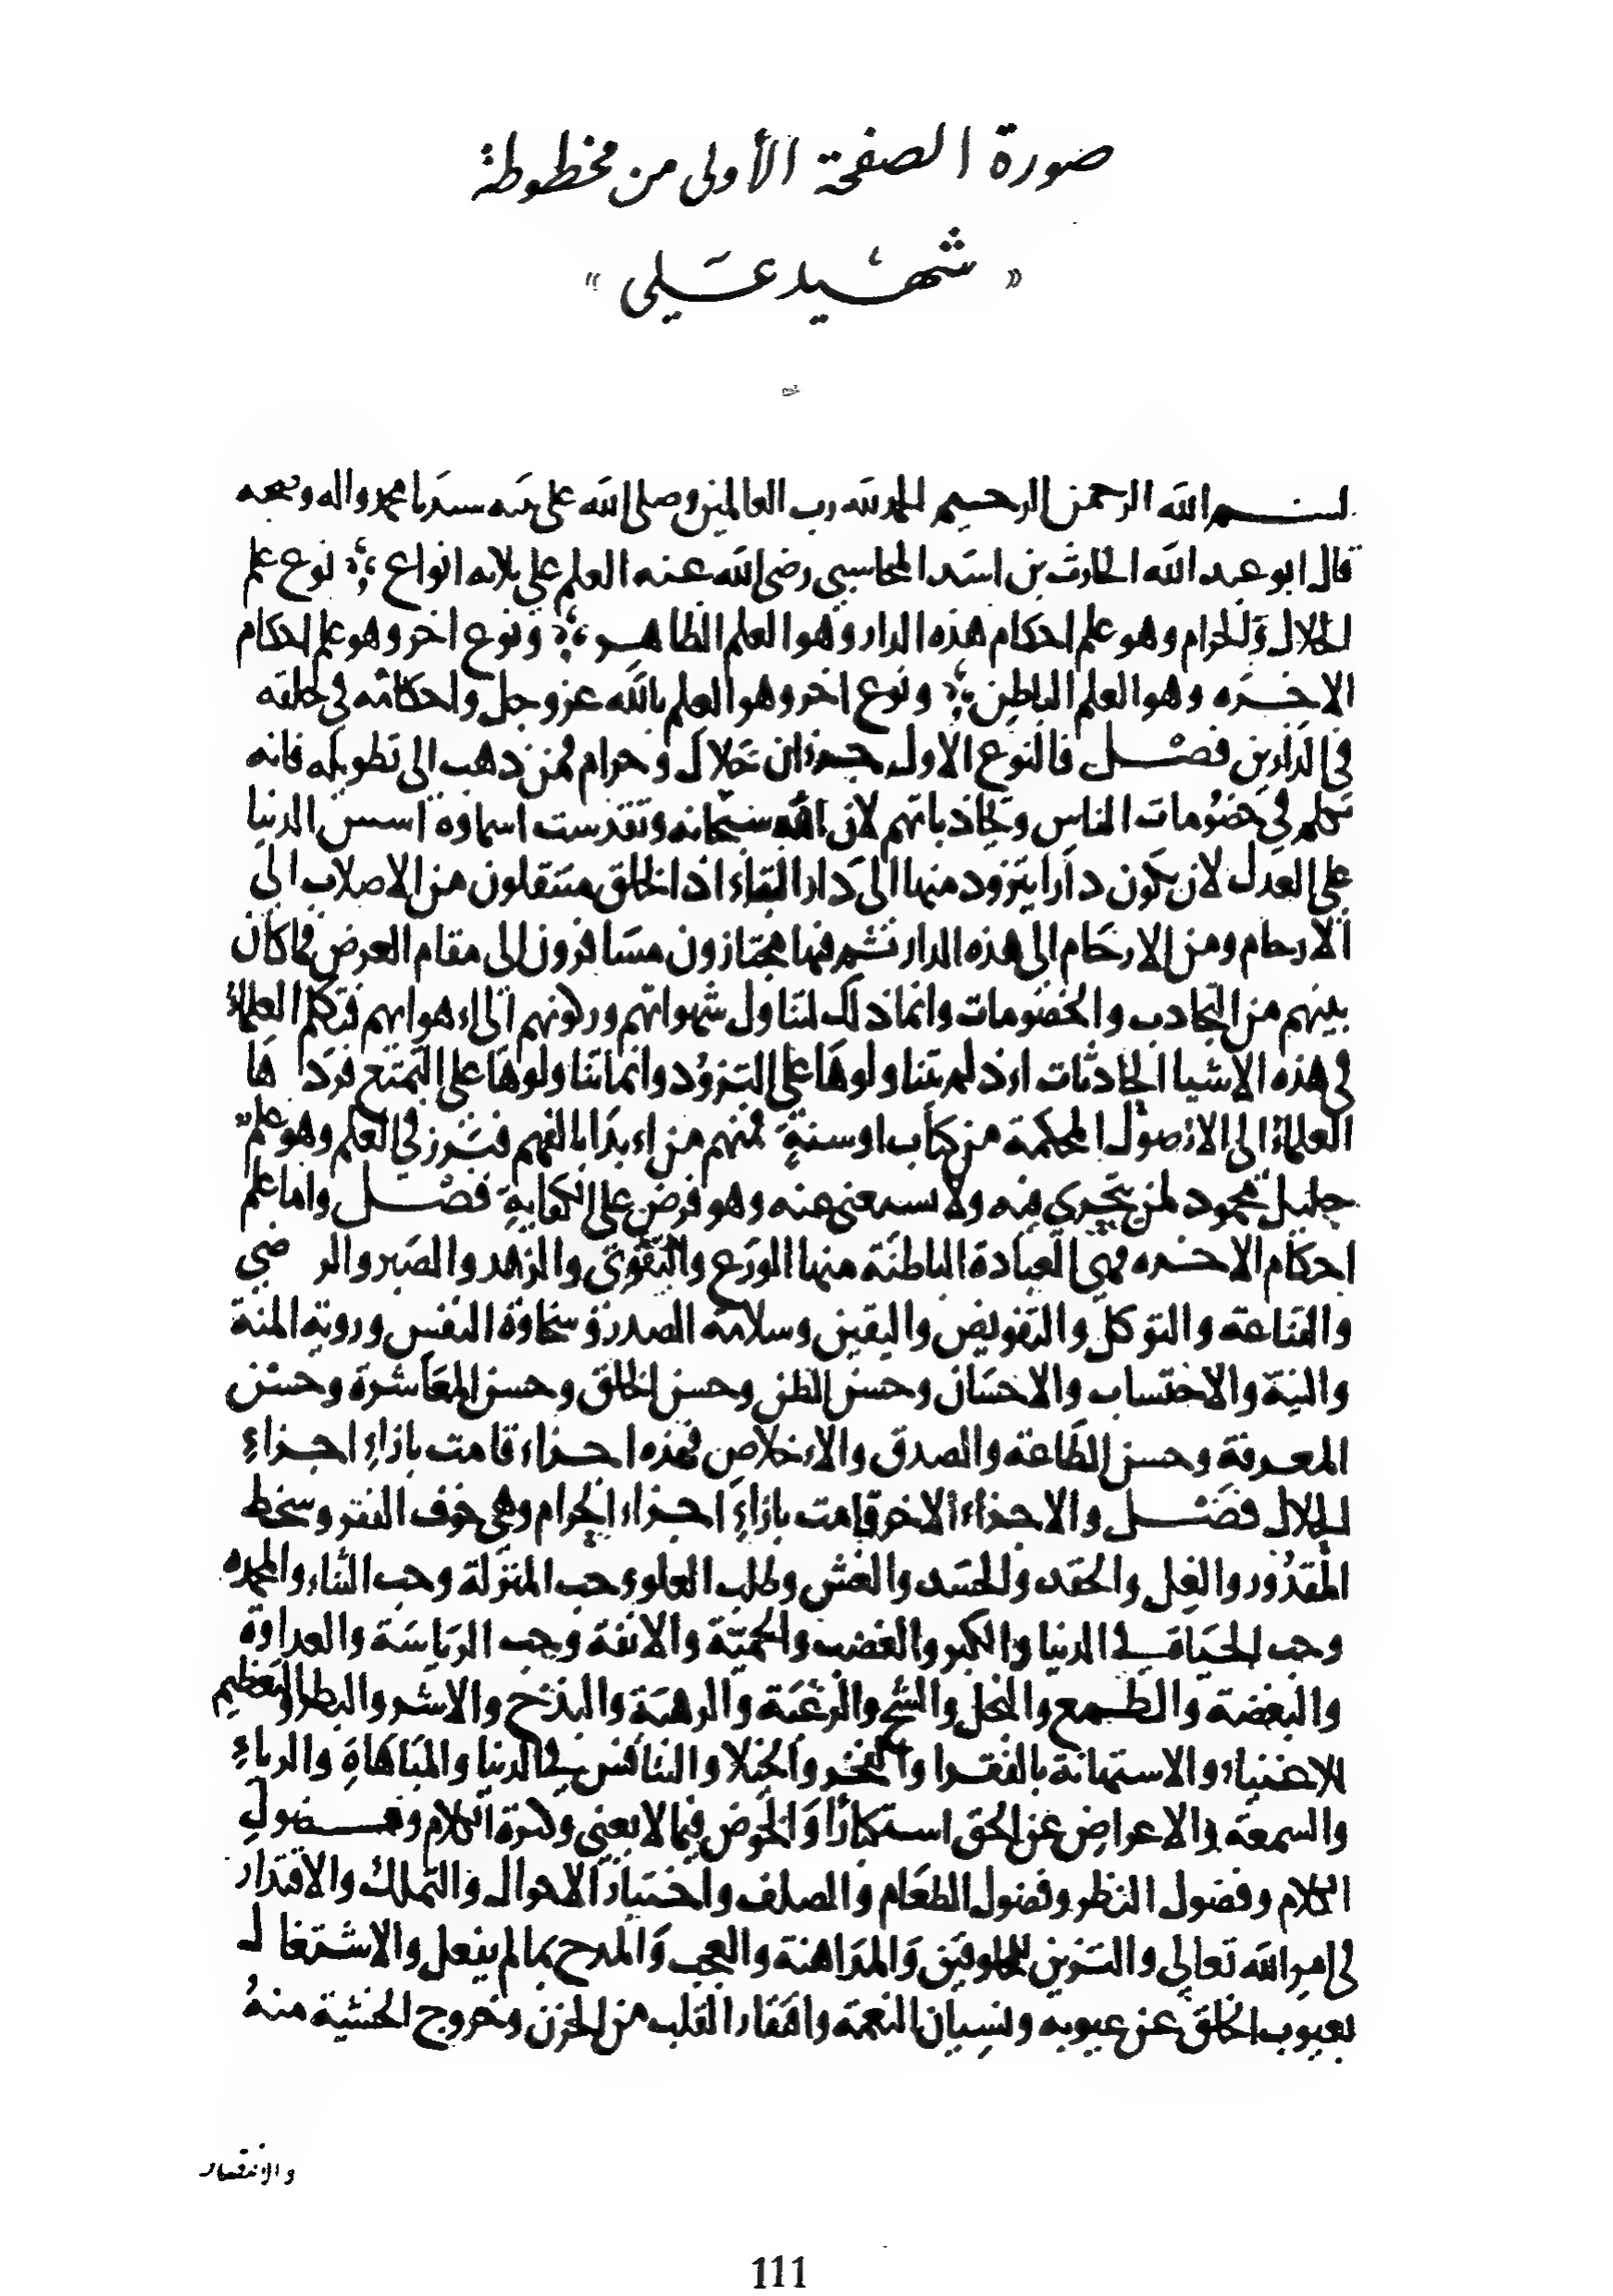 صورة الصفحة الأولى من مخطوطة
« شهيد عَلي »
بسم الله الرحمن الرحيم الحمد لله رب العالمين وصلى الله على نبيه سيدنا محمد واله وصحبه
قال ابو عبد الله الحارث بن اسد المحاسبي رضى الله عنه العلم على ثلاثه انواع نوع علم
الحلال والحرام وهو علم احكام هذه الدار وهو العلم الظاهر ونوع اخر وهو علم احكام
الاخره وهو العلم الباطن ونوع اخر وهو العلم بالله عز وجل واحكامه في خلقه
في الدارين فصل فالنوع الاول جزءان حلال وحرام فمن ذهب الى تطويله فانه
تكلم في خصومات الناس وتجاذباتهم لان الله سبحانه وتقدست اسماوه اسس الدنيا
على العدل لان يكون دارا يتزود منها الى دار البقاء اذ الخلق منتقلون من الاصلاب الى
الارحام ومن الارحام الى هذه الدار ثم فيها مجتازون مسافرون الى مقام العرض فما كان
بينهم من التجاذب والخصومات وانما ذلك لتناول شهواتهم وركونهم الى اهوايهم فتكلم العلماء
في هذه الاشيا الحادثات اذ لم يتناولوها على التزود وانما تناولوها على التمتع فردها
العلماء الى الاصول المحكمة من كتاب او سنة فمنهم من ايد بالفهم فبرز في العلم وهو علم
جليل محمود لمن يتحرى فيه ولا يستغنى عنه وهو فرض على الكفاية فصل واما علم
احكام الاخره فهي العبادة الباطنة منها الورع والتقوى والزهد والصبر والرضي
والقناعة والتوكل والتفويض واليقين وسلامة الصدر وسخاوة النفس وروية المنة
والنية والاحتساب والاحسان وحسن الظن وحسن الخلق وحسن المعاشرة وحسن
المعرفة وحسن الطاعة والصدق والاخلاص فهذه اجزاء قامت بازاء اجزاء
الحلال فصل والاجزاء الاخر قامت بازاء اجزاء الحرام وهي خوف الفقر وسخط
المقدور والغل والحقد والحسد والغش وطلب العلو وحب المنزلة وحب الثناء والمحمده
وحب الحياة في الدنيا والكبر والغضب والحمية والانفة وحب الرياسة والعداوة
والبغضة والطمع والبخل والشح والرغبة والرهبة والبذخ والاشر والبطر والتعظيم
للاغنياء والاستهانة بالفقرا والفخر والخيلا والتنافس في الدنيا والمباهاة والرياء
والسمعة والاعراض عن الحق استكبارا والخوض فيما لا يعني وكثرة الكلام وفضول
الكلام وفضول النظر وفضول الطعام والصلف واختيار الاحوال والتملك والاقتدار
في امر الله تعالى والتزين للمخلوقين والمداهنة والعجب والمدح بما لم يفعل والاشتغال
بعيوب الخلق عن عيوبه ونسيان النعمة وافتقار القلب من الحزن وخروج الخشية منه
والانتصار
111